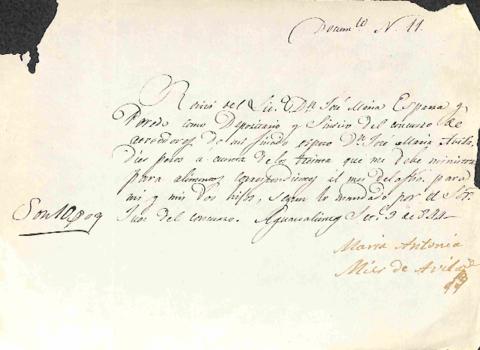 Docum.to N. 11.
Recivi del Sr. D.n José Maria España y
como Depositario y Sindico del concurso de
acredores de mi finado esposo D.n Jose Maria Avila
dies pesos a cuenta de los treinta que me debe ministrar
para alimentos correspondientes al mes de la fha. para
mi y mis dos hijos, segun lo mandado por el Sôr.
Jues del concurso. Aguascalientes 9 de 844
Son 10 ps
Maria Antonia
de Avila